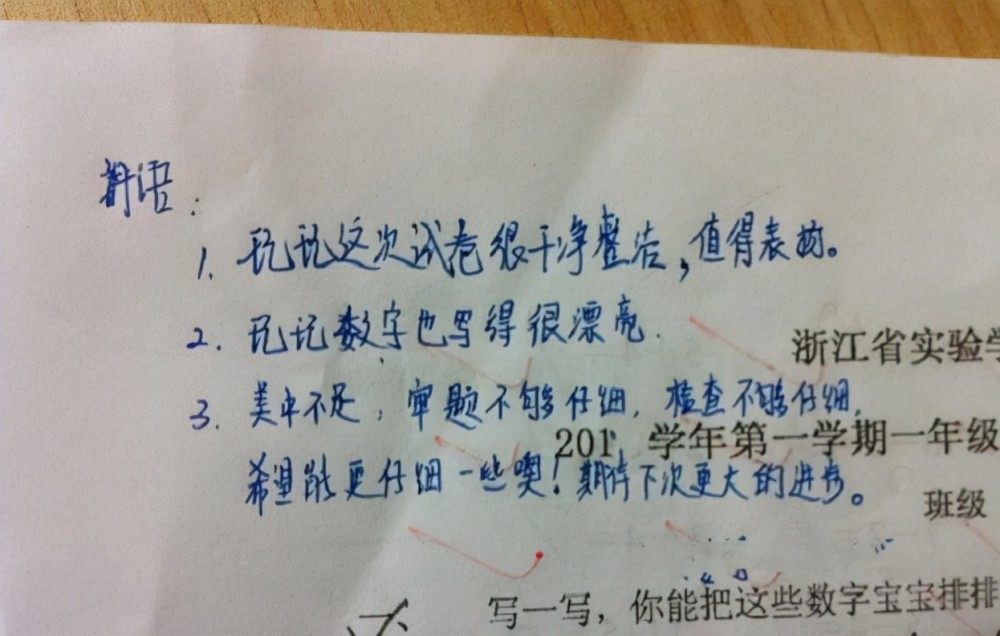 寄语：
1. 记记这次试卷很干净整洁，值得表扬。
2. 记记数字也写得很漂亮.
浙江省实验学
3. 美中不足，审题不够仔细，检查不够仔细，
201 学年第一学期一年级
希望能更仔细一些噢！期待下次更大的进步。
班级
写一写，你能把这些数字宝宝排排